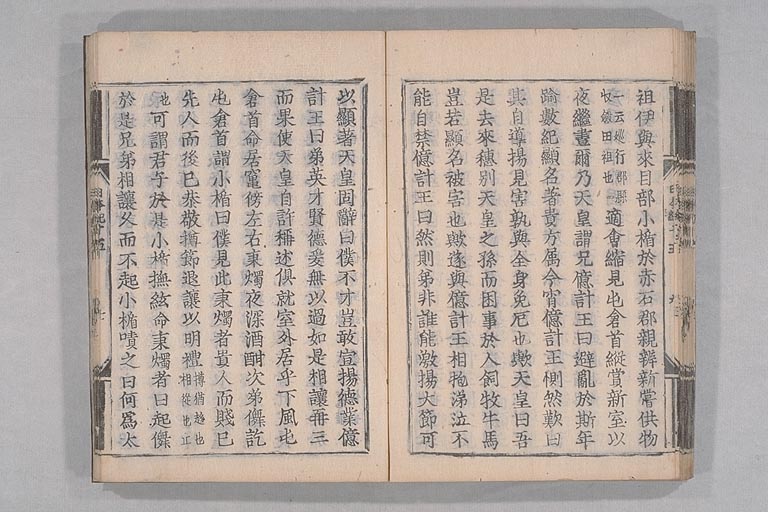 祖伊與來目部小楯於赤石郡親辨新嘗供物
一云巡行郡縣
収斂田租也
適會縮見屯倉首縱賞新室以
夜繼晝爾乃天皇謂兄億計王曰避亂於斯年
踰數紀顯名著貴方属今宵億計王惻然歎曰
其自導揚見害孰與全身免厄也歟天皇曰吾
是去來穗別天皇之孫而困事於人飼牧牛馬
豈若顯名被害也歟遂與億計王相抱涕泣不
能自禁億計王曰然則弟非誰能激揚大節可
以顯著天皇固辭曰僕不才豈敢宣揚德業億
計王曰弟英才賢德爰無以過如是相讓再三
而果使天皇自許稱述俱就室外居乎下風屯
倉首命居竈傍左右秉燭夜深酒酣次第儛訖
屯倉首謂小楯曰僕見此秉燭者貴人而賤己
先人而後己恭敬撙節退讓以明禮
撙猶趍也
相從也止
也
可謂君子於是小楯撫絃命秉燭者曰起儛
於是兄弟相讓久而不起小楯嘖之曰何爲太